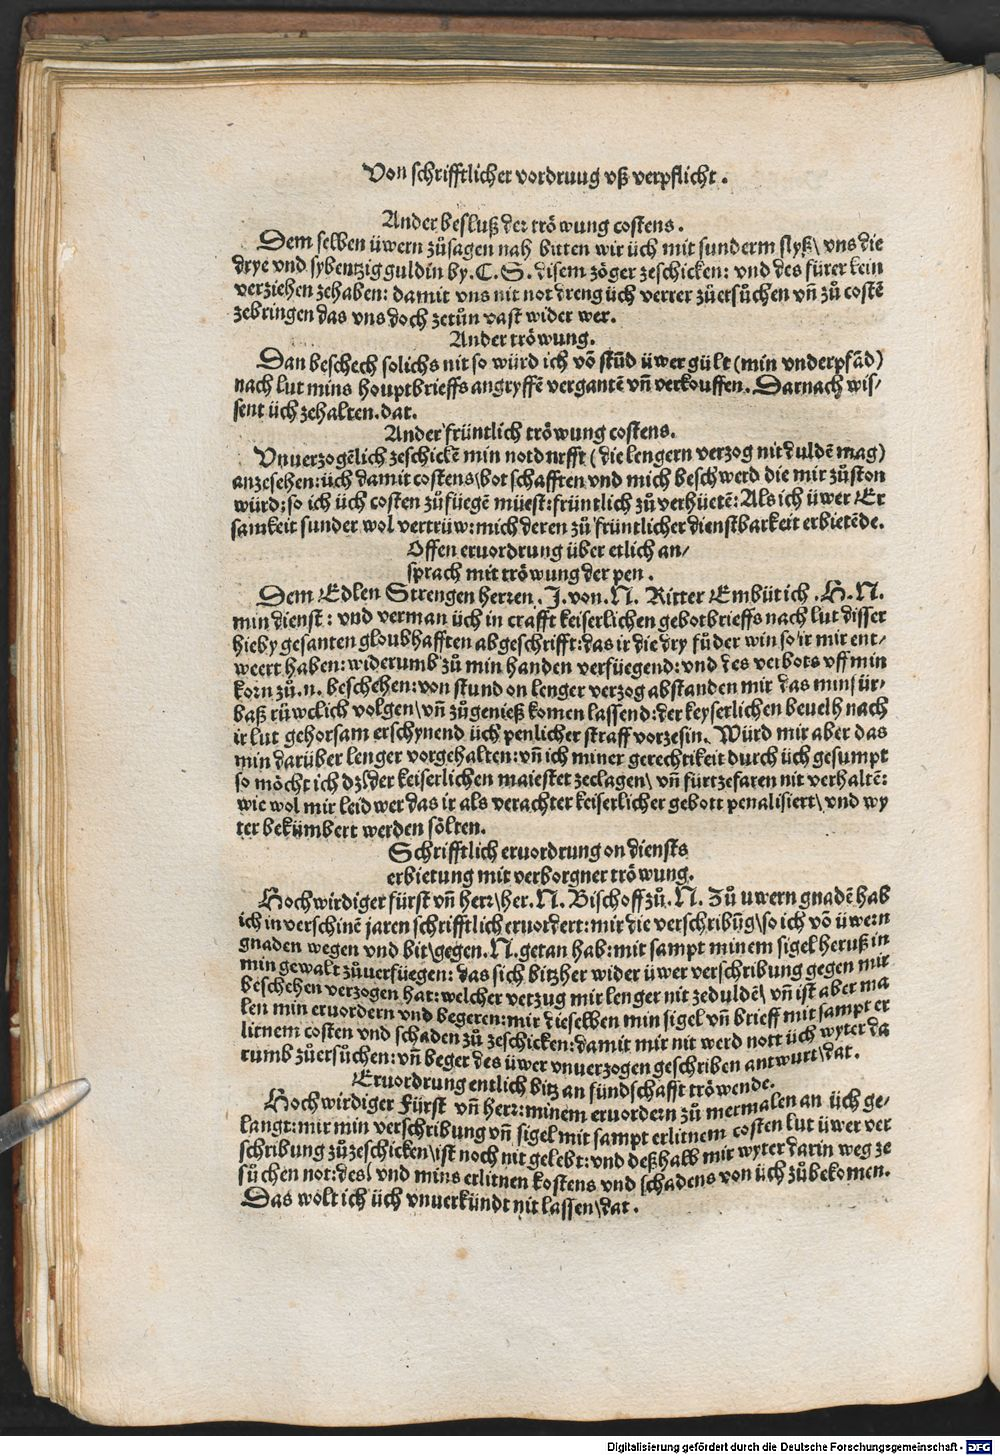 Von schrifftlicher vordruug vß verpflicht.
Ander besluß der tröwung costens.
Dem selben üwern zůsagen nah bitten wir üch mit sunderm flyß\ vns die
drye vnd sybentzig guldin by. C. S. disem zöger zeschicken: vnd des fürer kein
verziehen zehaben: damit vns nit not dreng üch verrer zůersůchen vn̄ zů costē
zebringen das vns doch zetůn vast wider wer.
Ander tröwung.
Dan beschech solichs nit so würd ich vō stūd üwer gült (min vnderpfād)
nach lut mins houptbrieffs angryffē vergantē vn̄ verkouffen. Darnach wis⸗
sent üch zehalten. dat.
Ander früntlich tröwung costens.
Vnuerzogēlich zeschickē min notdurfft (die lengern verzog nit duldē mag)
anzesehen: üch damit costens\ botschafften vnd mich beschwerd die mir zůston
würd: so ich üch costen zůfüegē müest: früntlich zů verhüetē: Als ich üwer Er
samkeit sunder wol vertrüw: mich deren zů früntlicher dienstbarkeit erbietēde.
Offen eruordrung über etlich an⸗
sprach mit tröwung der pen.
Dem Edlen Strengen herren. J. von. N. Ritter Embüt ich. H. N.
min dienst: vnd verman üch in crafft keiserlichen gebotbrieffs nach lut disser
hieby gesanten gloubhafften abgeschrifft: das ir die dry fůder win so ir mir ent⸗
weert haben: widerumb zů min handen verfüegend: vnd des verbots vff min
korn zů. n. beschehen: von stund on lenger verzog abstanden mir das min für⸗
baß rüwclich volgen\ vn̄ zůgenieß komen lassend: der keyserlichen beuelh nach
ir lut gehorsam erschynend üch penlicher straff vorzesin. Würd mir aber das
min darüber lenger vorgehalten: vn̄ ich miner gerechtikeit durch üch gesumpt
so möcht ich dz\ der keiserlichen maiestet zeclagen\ vn̄ fürtzefaren nit verhaltē:
wie wol mir leid wer das ir als verachter keiserlicher gebott penalisiert\ vnd wy
ter bekümbert werden sölten.
Schrifftlich eruordrung on diensts
erbietung mit verborgner tröwung.
Hochwirdiger fürst vn̄ herr\ her. N. Bischoff zů. N. Zů uwern gnadē hab
ich in verschinē jaren schrifftlich eruordert: mir die verschribūg\ so ich vō üwern
gnaden wegen vnd bit\ gegen. N. getan hab: mit sampt minem sigel heruß in
min gewalt zůuerfüegen: das sich bitzher wider üwer verschribung gegen mir
beschehen verzogen hat: welcher verzug mir lenger nit zeduldē\ vn̄ ist aber ma
len min eruordern vnd begeren: mir dieselben min sigel vn̄ brieff mit sampt er
litnem costen vnd schaden zů zeschicken: damit mir nit werd nott üch wyter da
rumb zůersůchen: vn̄ beger des üwer vnuerzogen geschriben antwurt\ dat.
Eruordrung entlich bitz an fündschafft tröwende.
Hochwirdiger Fürst vn̄ herr: minem eruordern zů mermalen an üch ge⸗
langt: mir min verschribung vn̄ sigel mit sampt erlitnem costen lut üwer ver
schribung zůzeschicken\ ist noch nit gelebt: vnd deßhalb mir wyter darin weg ze
sůchen not: des\ vnd mins erlitnen kostens vnd schadens von üch zůbekomen.
Das wolt ich üch vnuerkündt nit lassen\ dat.
Digitalisierung gefördert durch die Deutsche Forschungsgemeinschaft - DFG